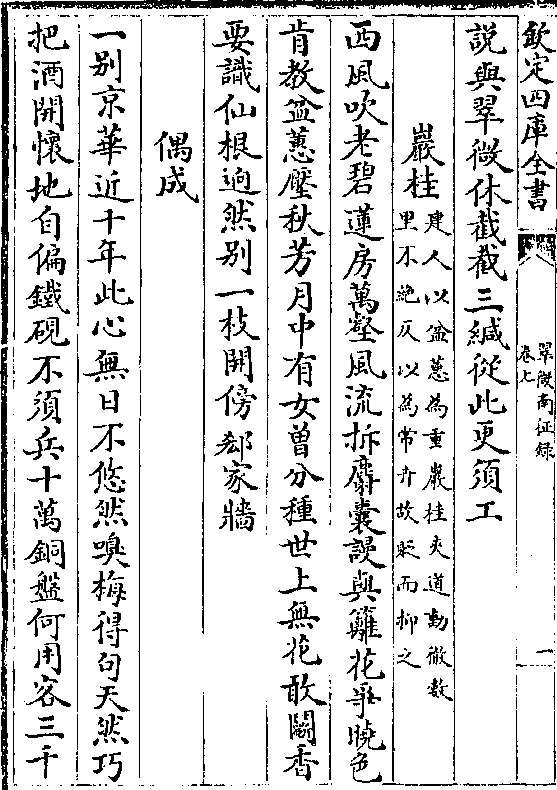 欽定四庫全書
翠微南征錄
卷七
一
說與翠微休截截三緘從此更須工
巖桂
建人以盆蕙為重巖桂夾道動徹數
里不絶反以為常卉故貶而抑之
西風吹老碧蓮房萬壑風流拆麝囊謾與籬花爭曉色
肯教盆蕙壓秋芳月中有女曾分種世上無花敢鬬香
要識仙根逈然别一枝開傍郄家牆
偶成
一别京華近十年此心無日不悠然嗅梅得句天然巧
把酒開懷地自偏鐵硯不須兵十萬銅盤何用客三千